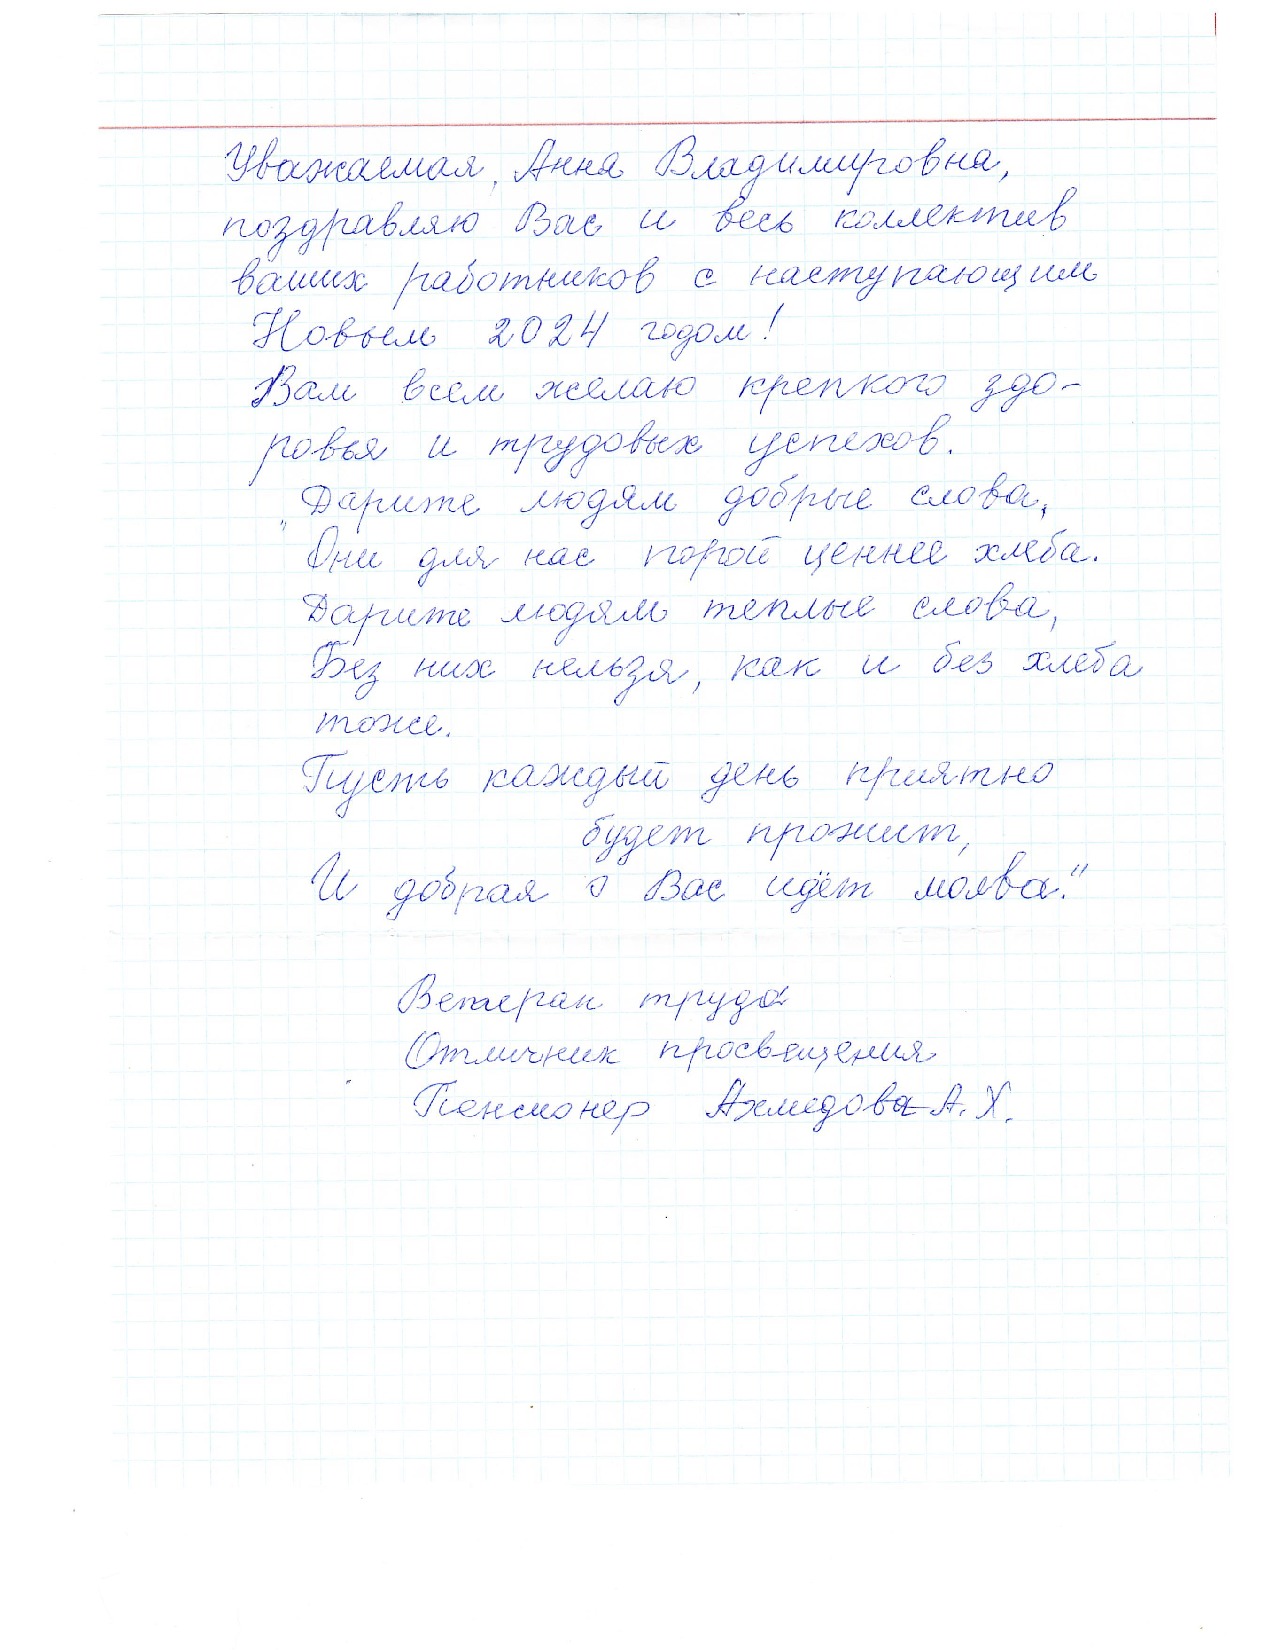 Уважаемая, Анна Владимировна,
поздравляю Вас и весь коллектив
ваших работников с наступающим
Новым 2024 годом!
Вам всем желаю крепкого здо-
ровья и трудовых успехов.
„Дарите людям добрые слова,
Они для нас порой ценнее хлеба.
Дарите людям теплые слова,
Без них нельзя, как и без хлеба
тоже.
Пусть каждый день приятно
будет прожит,
И добрая о Вас идёт молва."
Ветеран труда
Отличник просвещения
Пенсионер Ахмедова А. Х.